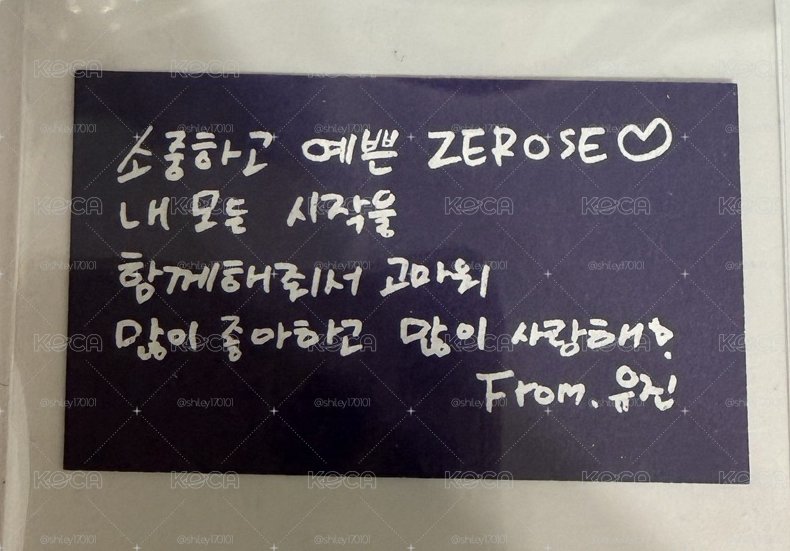 소중하고 예쁜 ZEROSE♡
내 모든 시작을
함께해줘서 고마워
많이 좋아하고 많이 사랑해!
From. 유진
KOCA
@shley170101